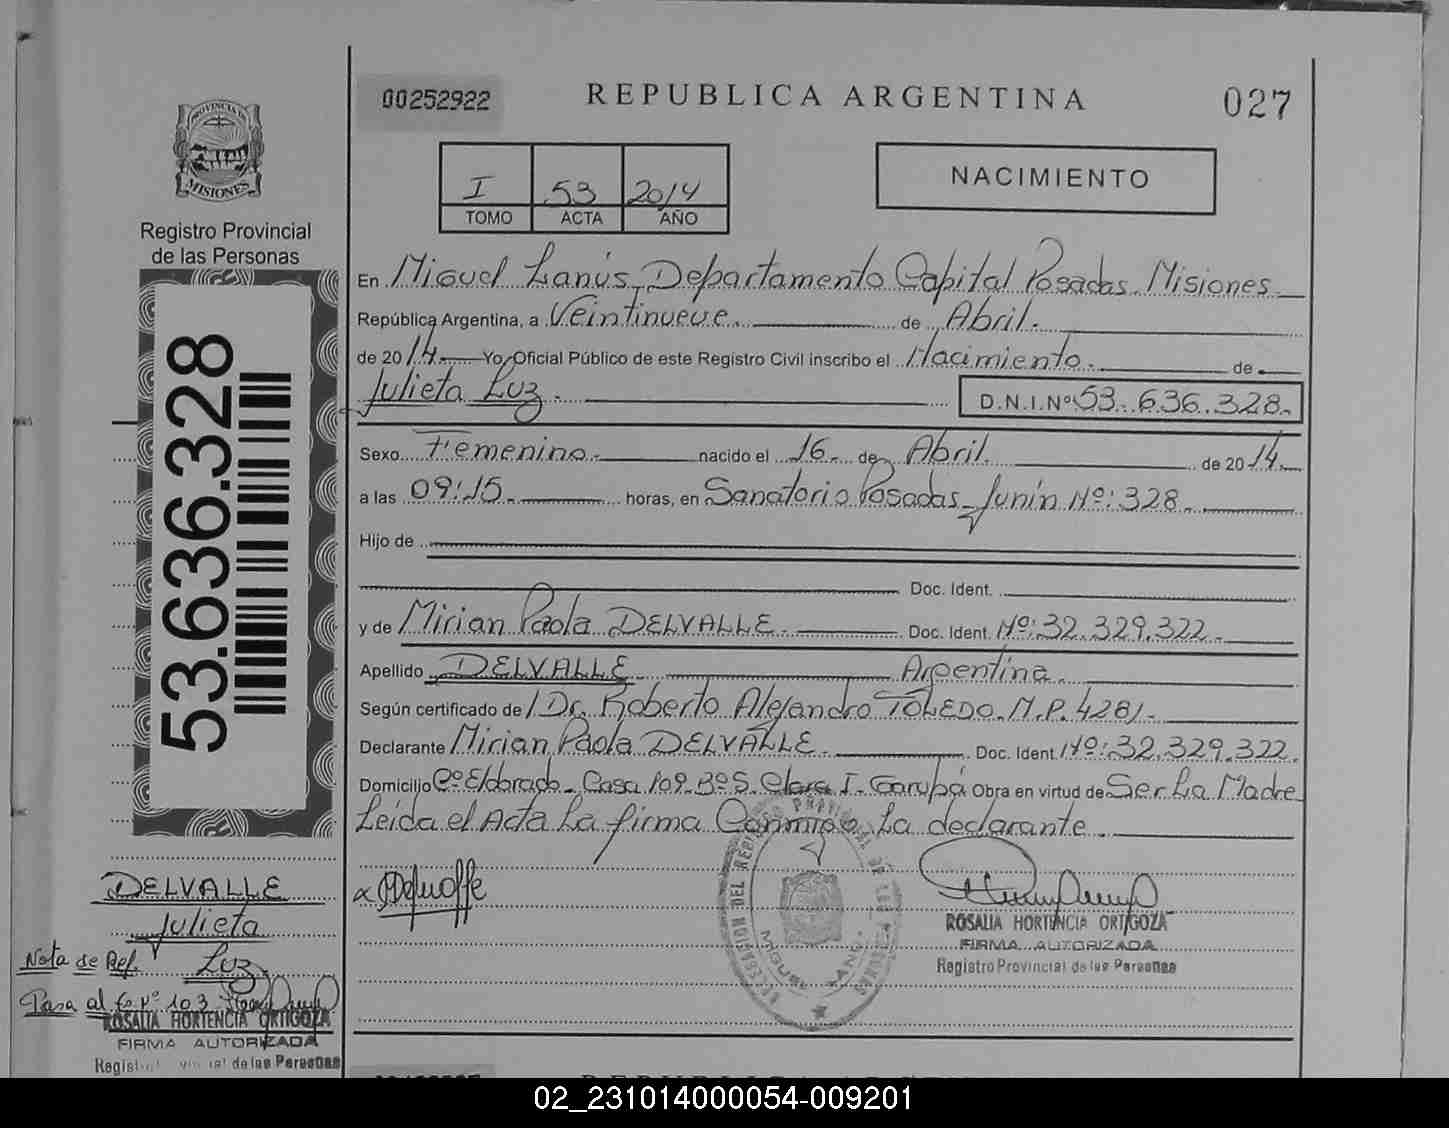 PROVINCIA DE
MISIONES
Registro Provincial
de las Personas
53.636.328
DELVALLE
Julieta
Luz
Nota de Ref.
Pasa al Fº Nº 103
ROSALIA HORTENCIA ORTIGOZA
FIRMA AUTORIZADA
de las Personas
00252922
REPUBLICA ARGENTINA
027
I 53 2014
TOMO ACTA AÑO
NACIMIENTO
En Miguel Lanús, Departamento Capital Posadas. Misiones
República Argentina, a Veintinueve. de Abril.
de 2014 Yo, Oficial Público de este Registro Civil inscribo el Nacimiento. de
Julieta Luz. D.N.I.Nº 53.636.328.
Sexo Femenino. nacido el 16 de Abril. de 2014
a las 09:15. horas, en Sanatorio Posadas - Junín Nº: 328.
Hijo de
Doc. Ident.
y de Mirian Paola DELVALLE. Doc. Ident. Nº: 32.329.322.
Apellido DELVALLE Argentina.
Según certificado de Dr. Roberto Alejandro TOLEDO. M.P. 4281.
Declarante Mirian Paola DELVALLE. Doc. Ident. Nº: 32.329.322.
Domicilio Cº Eldorado - Casa 109. Bº S. Clara I - Garupá Obra en virtud de Ser La Madre
Leída el Acta La firma Conmigo, La declarante.
ROSALIA HORTENCIA ORTIGOZA
FIRMA AUTORIZADA
Registro Provincial de las Personas
DELEGACION DEL REGISTRO PROVINCIAL DE LAS PERSONAS
MIGUEL LANUS
02_231014000054-009201